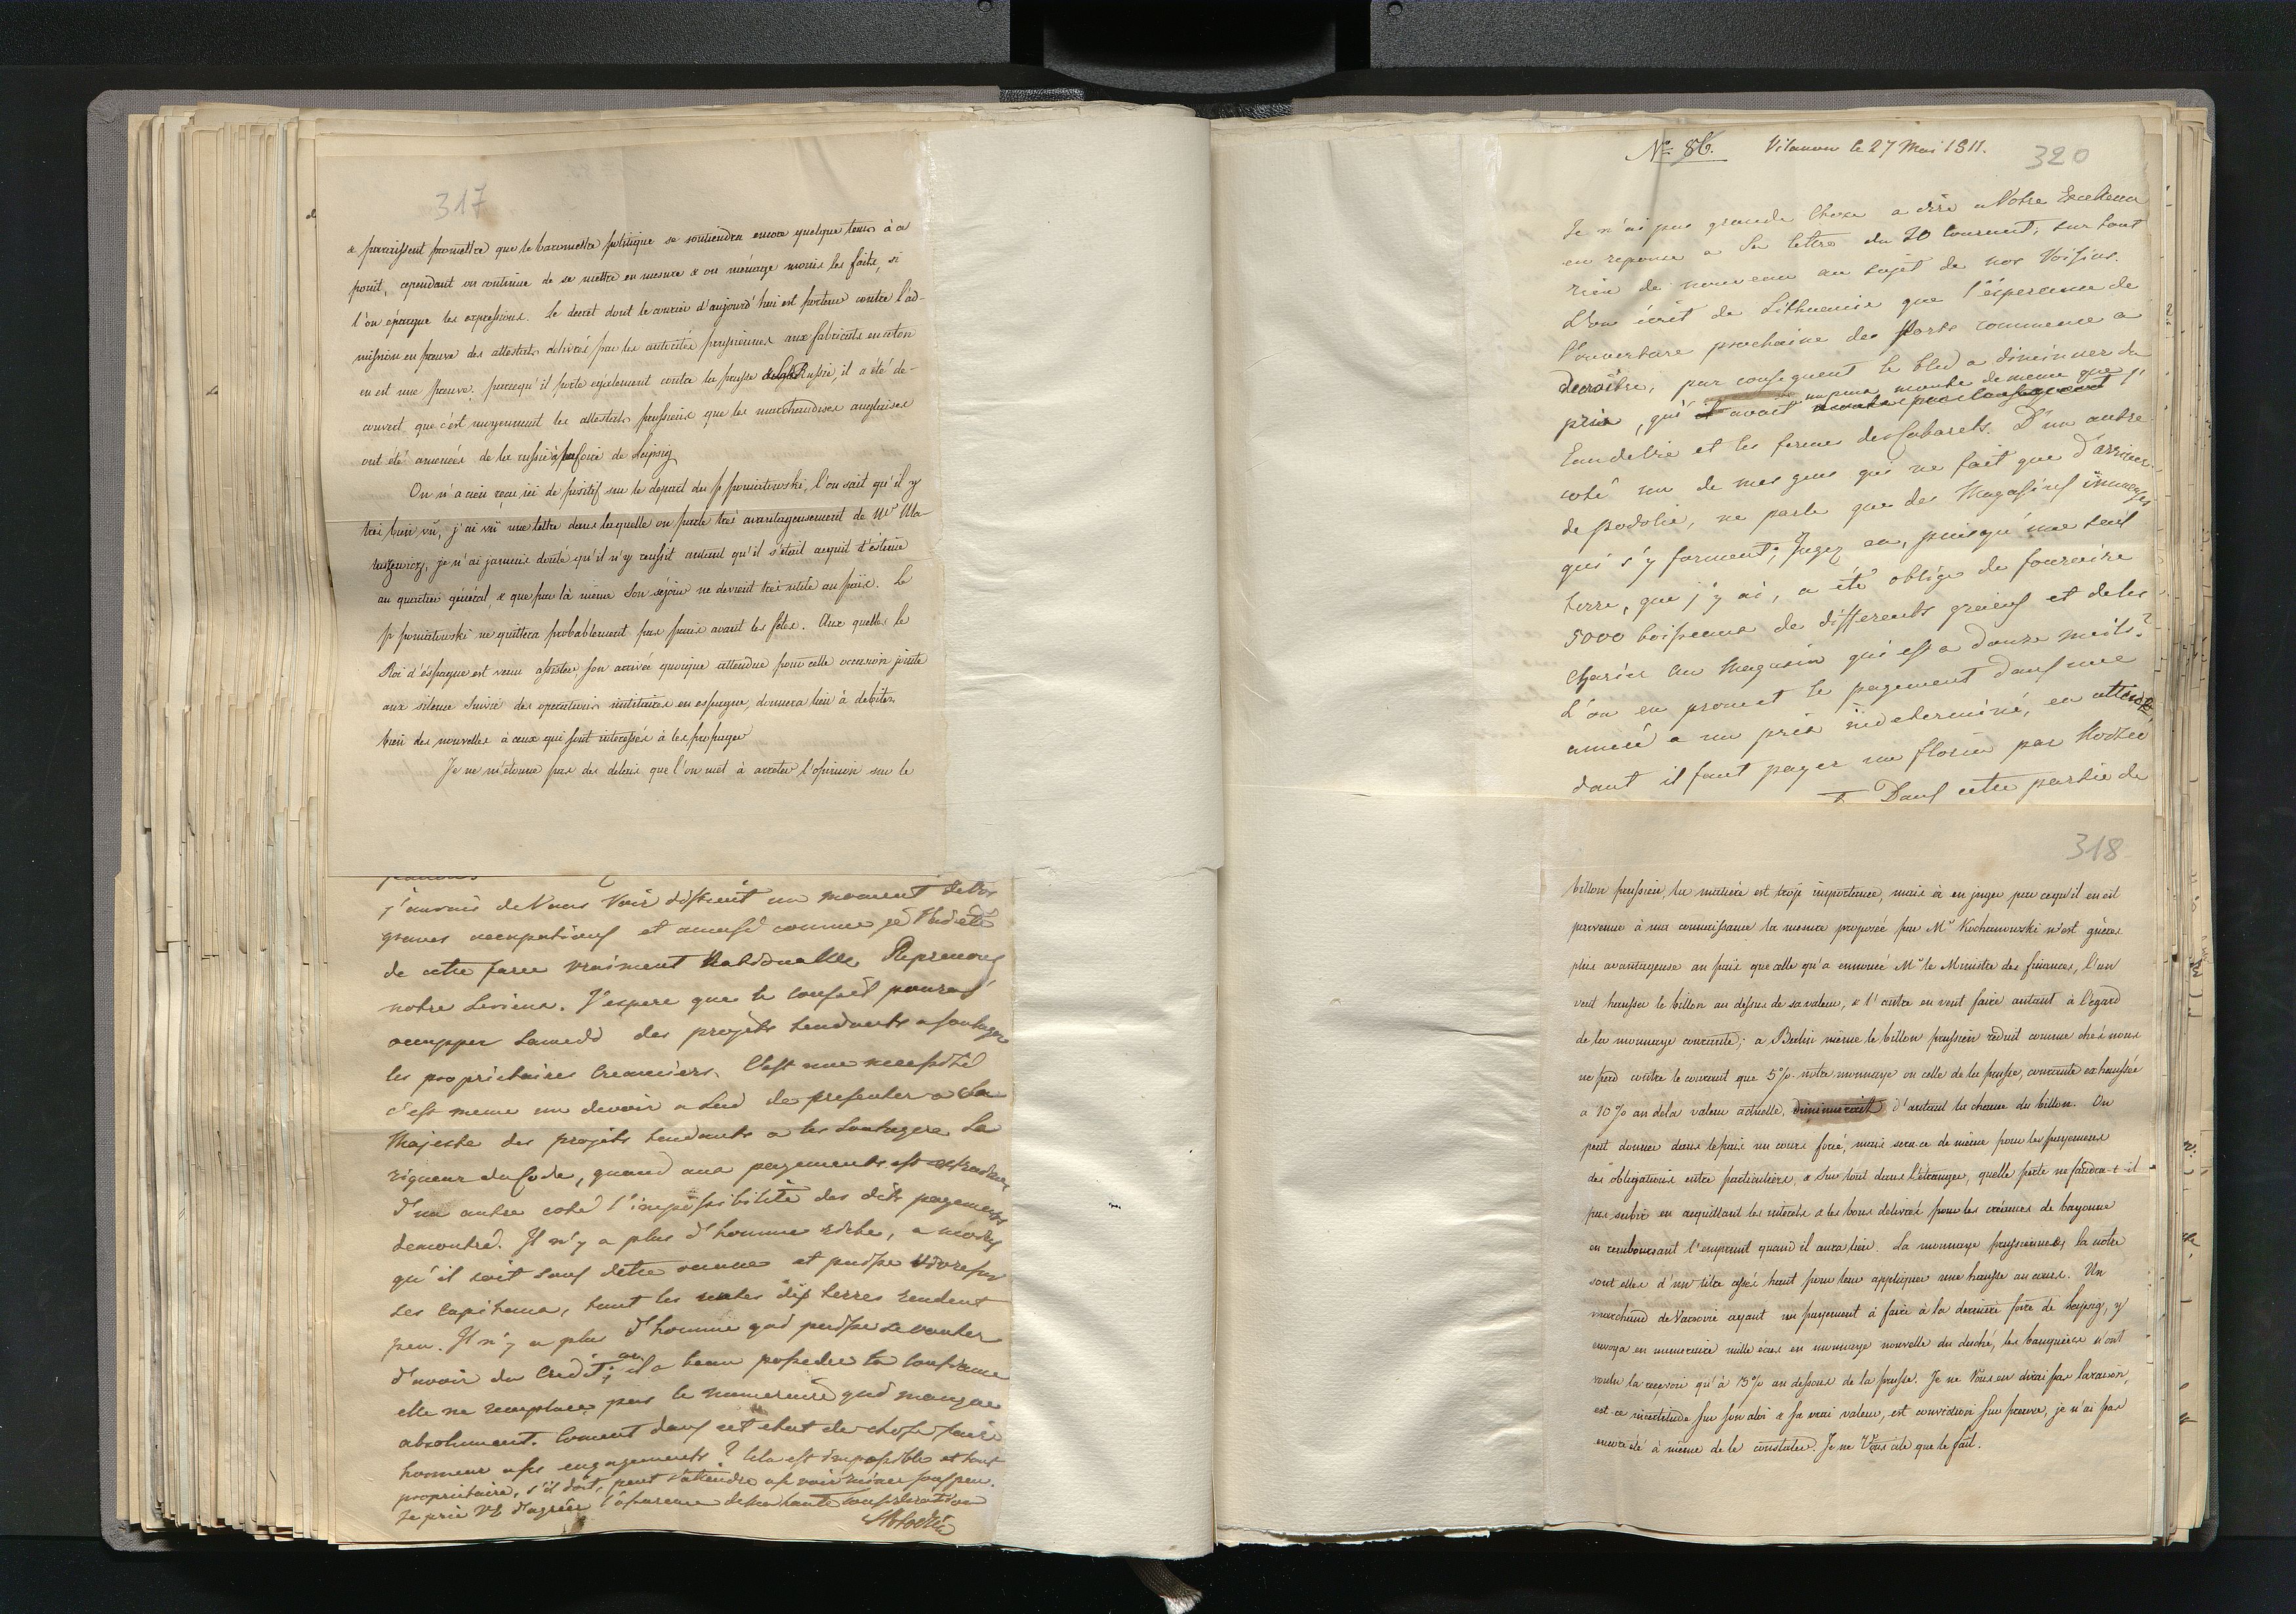 317
& paraissent promettre que le barometre politique se soutiendra encore quelque tems à ce
point, cependant on continue de se mettre en mesure & on menage moins les faits, si
l'on épargne les expressions. Le decret dont le courier d'aujourd'hui est porteur contre l'ad-
mission en preuve des attestats delivrés par les autorités prussiennes aux fabricats en coton
en est une preuve, parcequ'il porte egalement contre la prusse Russie, il a été dé-
couvert que c'est moyennant les attestats prussiens que les marchandises anglaises
ont été amenées de la russie à la foire de Leipsig
On n'a rien reçu ici de positif sur le depart du p poniatowski, l'on sait qu'il y
trés bien vû, j'ai vû une lettre dans laquelle on parle trés avantageusement de Mr Ma-
tuszewicz, je n'ai jamais douté qu'il n'y reussit autant qu'il s'était acquit d'estime
au quartier général, & que par là même son séjour ne devient trés utile au païs. Le
p poniatowski ne quittera probablement pas paris avant les fêtes. Aux quelles le
Roi d'éspagne est venu assister, son arrivée quoique attendue pour cette occasion jointe
aux silence suivie des operations militaires en espagne, donnera lieu à debiter
bien des nouvelles à ceux qui sont interessés à les propager
Je ne m'étonne pas des delais que l'on met à arreter l'opinion sur le
j'aurais de Vous Voir distrait un moment de Vos
graves occupations et amusé comme je l'ai été
de cette farce vraiment Nationalle. Reprenons
notre serieux. J'espere que le conseil pourra
occupper Samedi des projets tendants a soulager
les proprietaires creanciers. C'est une necessité
c'est meme un devoir a lui de presenter a Sa
Majesté des projets tendants a les soulager. La
rigueur du Code, quand aux payements est
d'un autre coté l'impossibilité des dits payements
demontré. Il n'y a plus d'homme riche, a moins
qu'il soit sans dette aucune et puisse vivre sur
ses capitaux, tant les terres rendent
peu. Il n'y a plus d'homme qui puisse se vanter
d'avoir du Credit; car il a beau posseder la confiance
elle ne remplace pas le numeraire qui manque
absolument. Coment dans cet etat de chose faire
honneur a ses engagements? Cela est impossible et tout
proprietaire, s'il doit, peut s'attendre a se voir ruiner sous peu.
Je prie VE d'agréer l'assurance de ma haute consideration
No 86. Vilanow le 27 Mai 1811.
320
Je n'ai pas grande Chose a dire a Votre Excellence
en reponse a Sa lettre du 20 Courrent; sur tout
rien de nouveau au sujet de nos Voisins.
L'on écrit de Lithuanie que l'esperance de
l'ouverture prochaine des Ports commence a
decroître, par consequent le bled a diminuer du
prix, qui avait un peu monté de meme que l'
Eau de Vie et les fermes des Cabarets. D'un autre
coté un de mes gens qui ne fait que d'arriver
de podolie, ne parle que des Magasins immenses
qui s'y forment; Jugez en, puisqu'une seul
terre, que j'y ai, a été obligé de fournire
5000 boisseaux de differents grains et de les
charier au Magasin qui est a douze meils?
L'on en promet le payement dans une
année a un prix indeterminé, en atten-
dant il faut payer un florin par Korzec
Dans cette partie de
318
billon prussien, la matière est trop importante, mais à en juger par ce qu'il en est
parvenue à ma connaissance la mesure proposée par Mr Kochanowski n'est guères
plus avantageuse au païs que celle qu'a ennoncé Mr le Ministre des finances, l'un
veut hausser le billon au dessus de sa valeur, & l'autre en veut faire autant à l'égard
de la monnaye courante; a Berlin même le billon prussien reduit comme ches nous
ne perd contre le courant que 5% notre monnaye ou celle de la prusse, courante exhaussée
a 10% au dela valeur actuelle, diminuerait d'autant la chance du billon. On
peut donner dans le païs un cours forcé, mais sera ce de même pour les payemens
des obligations entre particuliers, & sur tout dans l'étranger, quelle perte ne faudra-t-il
pas subir en acquittant les interets & les bons delivrés pour les créances de bayonne
en remboursant l'emprunt quand il aura lieu. La monnaye prussienne & la notre
sont elles d'un titre assés haut pour leur appliquer une hausse au cours. Un
marchand de Varsovie ayant un payement à faire à la derniere foire de leipsig, y
envoya en numeraire mille écus en monnaye nouvelle du duché, les banquiers n'ont
voulu la reçevoir qu'à 13% au dessous de la prusse. Je ne Vous en dirai pas la raison,
est ce incertitude sur son aloi & sa vrai valeur, est conviction sur preuve, je n'ai pas
encore été à même de le constater. Je ne Vous cite que le fait.